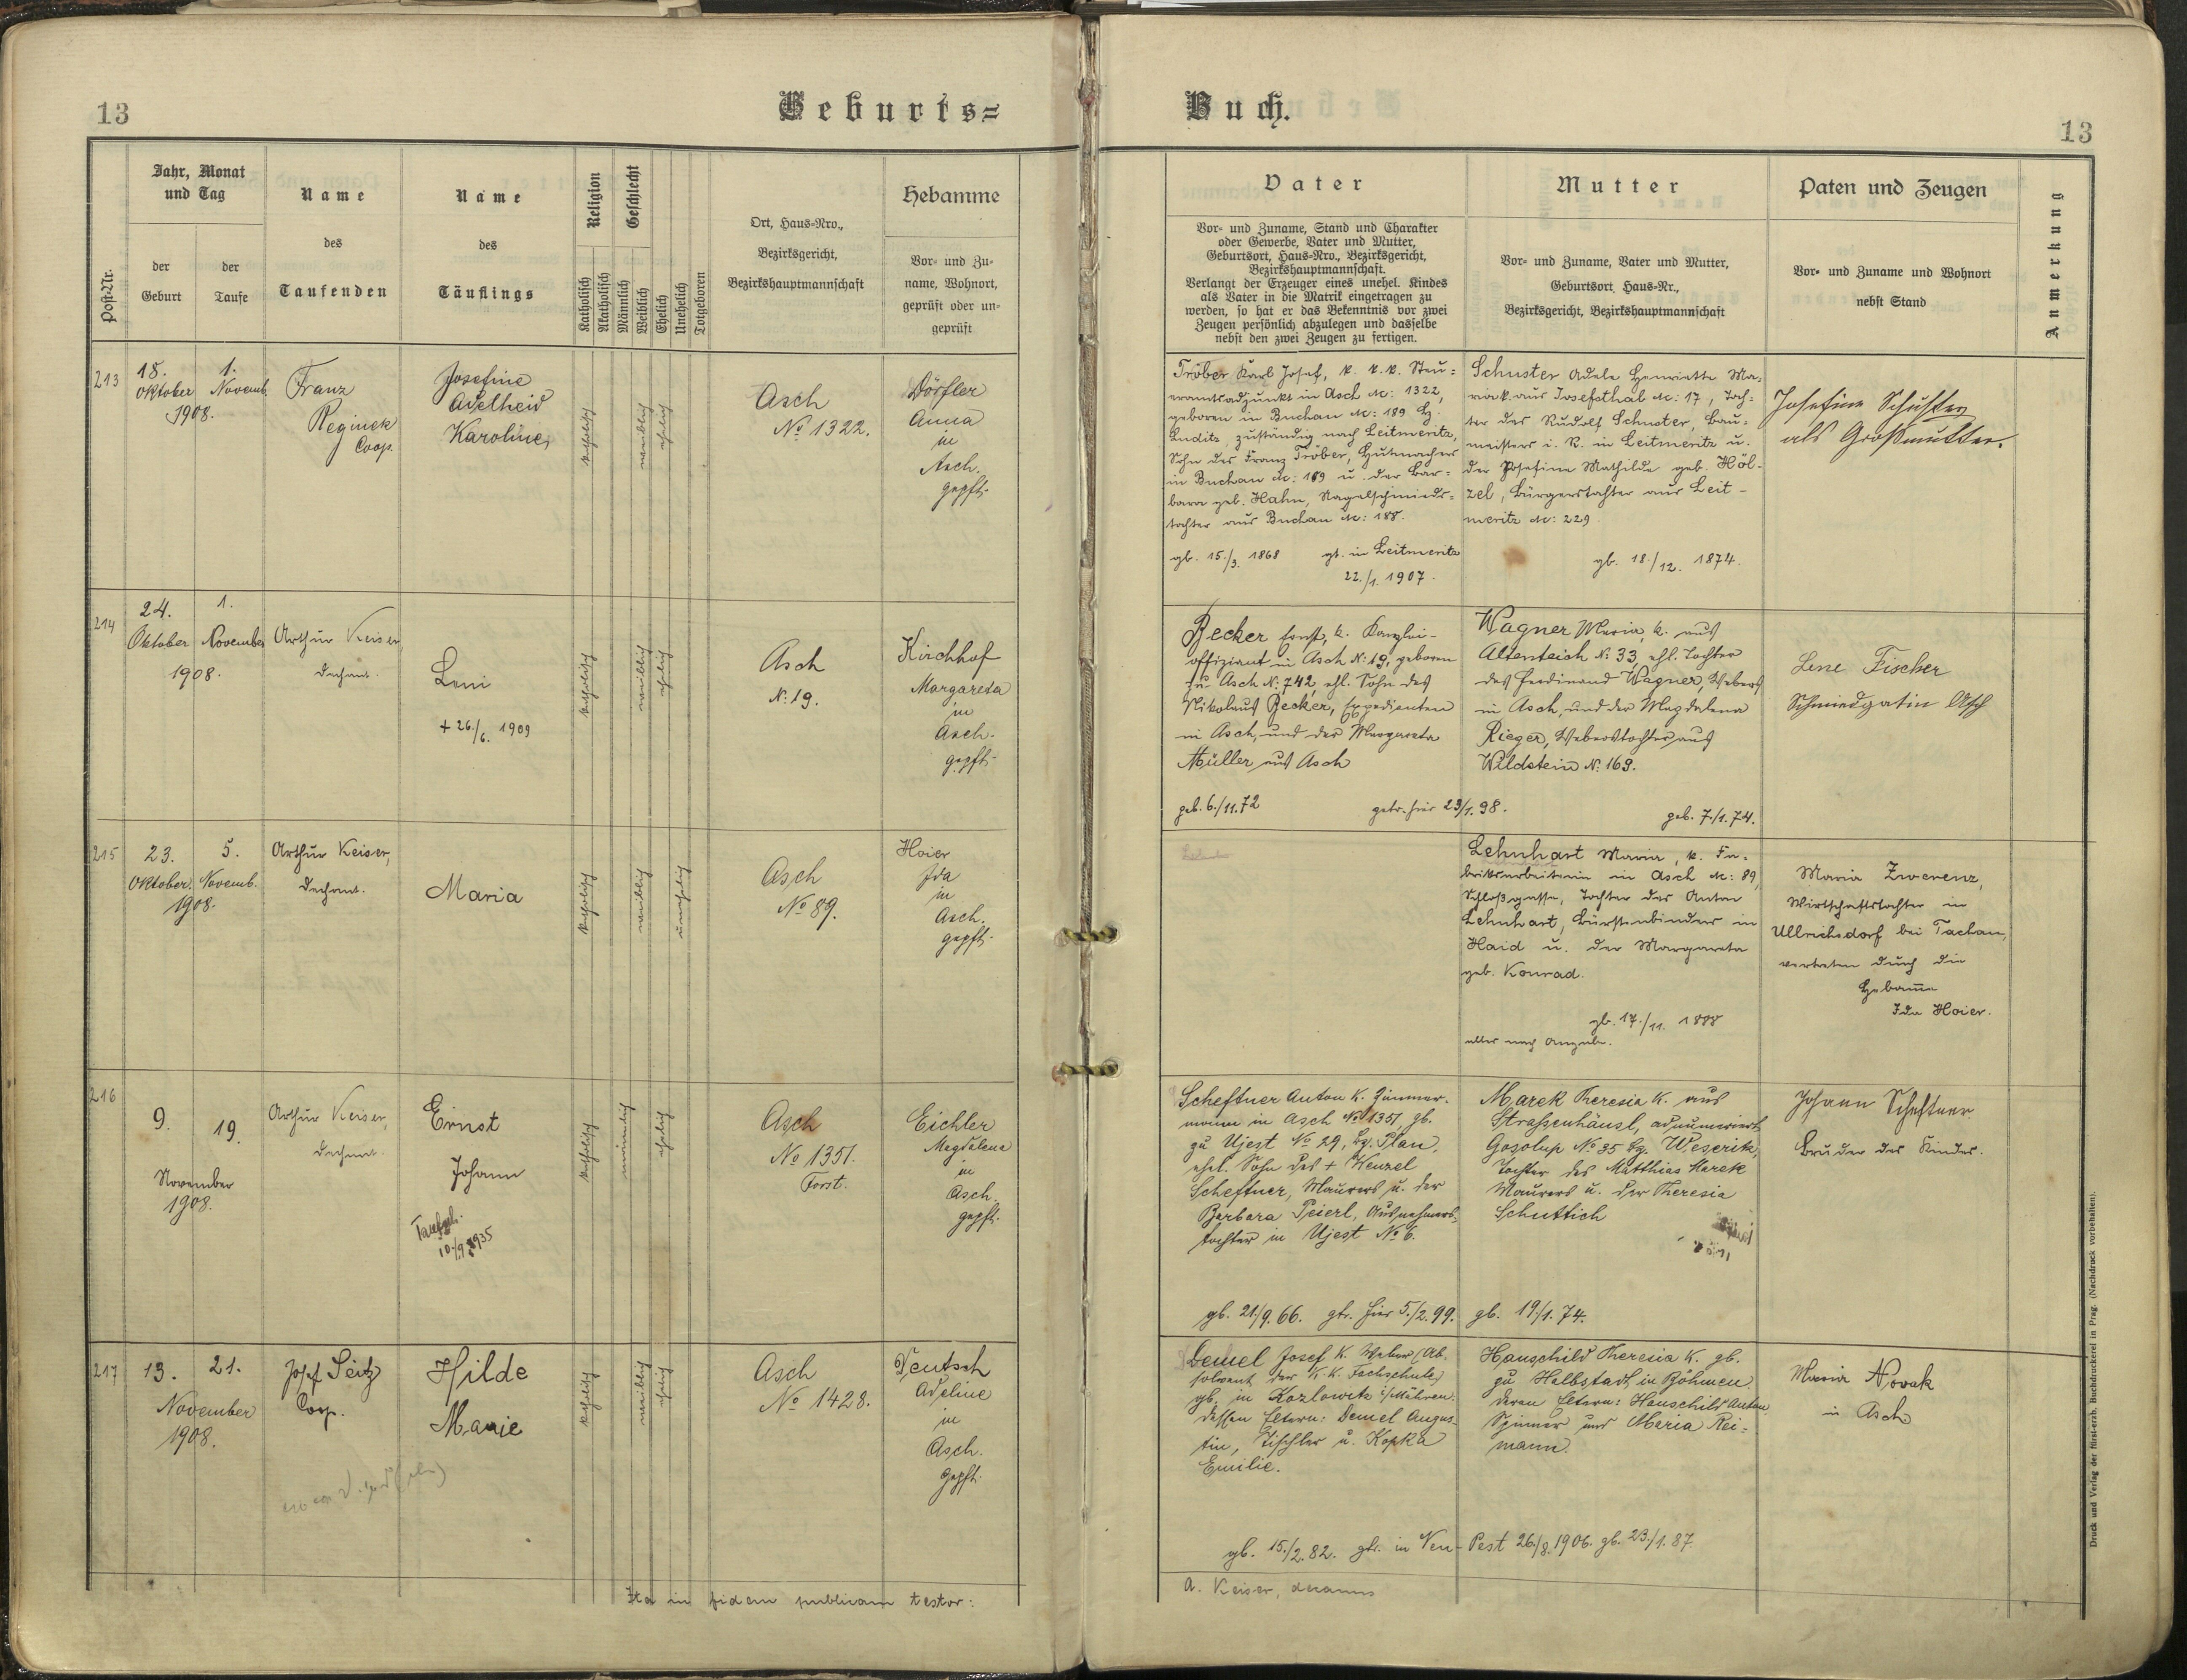 13
Geburts=
Post-Nr.
Jahr, Monat
und Tag
der
Geburt
der
Taufe
Name
des
Taufenden
Name
des
Täuflings
Religion
Katholisch
Akatholisch
Geschlecht
Männlich
Weiblich
Ehelich
Unehelich
Totgeboren
Ort, Haus-Nro.,
Bezirksgericht,
Bezirkshauptmannschaft
Hebamme
Vor- und Zu-
name, Wohnort,
geprüft oder un-
geprüft
213
18.
Oktober
1.
Novemb.
1908.
Franz
Reginek
Coop.
Josefine
Adelheid
Karoline,
katholisch
weiblich
ehelich
Asch
No 1322.
Dörfler
Anna
in
Asch.
gepft.
214
24.
Oktober
1.
November
1908.
Arthur Keiser,
Dechant.
Leni
+ 26./6. 1909
katholisch
weiblich
ehelich
Asch
N: 19.
Kirchhof
Margareta
in
Asch.
gepft.
215
23.
Oktober.
5.
Novemb.
1908.
Arthur Keiser,
Dechant.
Maria
katholisch
weiblich
unehelich
Asch
No 89.
Hoier
Ida
in
Asch.
gepft.
216
9.
19.
November
1908.
Arthur Keiser,
Dechant.
Ernst
Johann
Taufsch.
10./9. 1935
katholisch
männlich
ehelich
Asch
No 1351.
Forst.
Eichler
Magdalena
in
Asch.
gepft.
217
13.
21.
November
1908.
Josef Seitz
Coop.
Hilde
Marie
katholisch
weiblich
ehelich
Asch
No 1428.
Deutsch
Adeline
in
Asch.
gepft.
Ita in fidem publicam testor:
Buch.
13
Vater
Vor- und Zuname, Stand und Charakter
oder Gewerbe, Vater und Mutter,
Geburtsort, Haus-Nro., Bezirksgericht,
Bezirkshauptmannschaft.
Verlangt der Erzeuger eines unehel. Kindes
als Vater in die Matrik eingetragen zu
werden, so hat er das Bekenntnis vor zwei
Zeugen persönlich abzulegen und dasselbe
nebst den zwei Zeugen zu fertigen.
Mutter
Vor- und Zuname, Vater und Mutter,
Geburtsort, Haus-Nr.,
Bezirksgericht, Bezirkshauptmannschaft
Paten und Zeugen
Vor- und Zuname und Wohnort
nebst Stand
Anmerkung
Tröber Karl Josef, k. k. k. Steu=
eramtsadjunkt in Asch Nr: 1322,
geboren in Buchau Nr: 189 Bz.
Luditz, zuständig nach Leitmeritz,
Sohn des Franz Tröber, Hutmachers
in Buchau Nr: 189 u. der Bar=
bara geb. Hahn, Nagelschmieds=
tochter aus Buchau Nr: 188.
gb. 15./3. 1868 gt. in Leitmeritz
22./1. 1907.
Schuster Adele Henriette Ma=
ria k. aus Josefsthal Nr: 17, Toch=
ter des Rudolf Schuster, Bau=
meisters i. R. in Leitmeritz u.
der Josefine Mathilde geb. Höl-
zel, Bürgerstochter aus Leit-
meritz Nr: 229.
gb. 18./12. 1874.
Josefine Schuster
als Großmutter.
Becker Ernst, k. Kanzlei-
offiziant in Asch N: 19, geboren
zu Asch N: 742, ehl. Sohn des
Nikolaus Becker, Expedienten
in Asch, und der Margareta
Müller aus Asch
geb. 6./11. 72 getr. hier 23/1. 98.
Wagner Maria, k. aus
Altenteich N: 33, ehl. Tochter
des Ferdinand Wagner, Webers
in Asch, und der Magdalena
Rieger, Weberstochter aus
Wildstein N: 169.
geb. 7./1. 74.
Lene Fischer
Schmiedgatin Asch
Lehnhart Maria, k. Fa=
briksarbeiterin in Asch Nr: 89,
Schloßgasse, Tochter des Anton
Lehnhart, Bürstenbinders in
Haid u. der Margareta
geb. Konrad.
gb. 17./11. 1888
alles nach Angabe.
Maria Zwerenz,
Wirtschaftstochter in
Ullrichsdorf bei Tachau,
vertreten durch die
Hebame
Ida Hoier.
Scheftner Anton k. Zimmer-
mann in Asch No 1351 gb.
zu Ujest No 29, Bz. Plan,
ehel. Sohn des + Wenzel
Scheftner, Maurers u. der
Barbara Peierl, Ausnehmers=
tochter in Ujest No 6.
gb. 21/9. 66. gtr. hier 5./2. 99.
Marek Theresia k. aus
Straßenhäusl, adnumeriert
Gosolup No 35 Bz. Weseritz,
Tochter des Matthias Marek
Maurers u. der Theresia
Schuttich
gb. 19/1. 74.
Johann Scheftner
Bruder des Kindes.
Demel Josef k. Weber (Ab-
solvent der K. K. Fachschule)
gb. in Kozlowitz i/Mähren.
dessen Eltern: Demel Augus-
tin, Tischler u. Kopka
Emilie.
gb. 15./2. 82. gtr. in Neu-Pest 26./8. 1906. gb. 23./1. 87
Hauschild Theresia k. gb.
zu Halbstadt in Böhmen.
deren Eltern: Hauschild Anton
Spinner und Maria Rei=
mann.
Maria Novak
in Asch
A. Keiser, decanus
Druck und Verlag der fürst-erzb. Buchdruckerei in Prag. (Nachdruck vorbehalten).